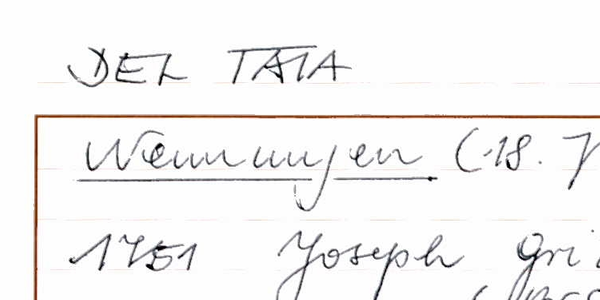 DEL TATA
Wemmingen (18. J
1751 Joseph Gri